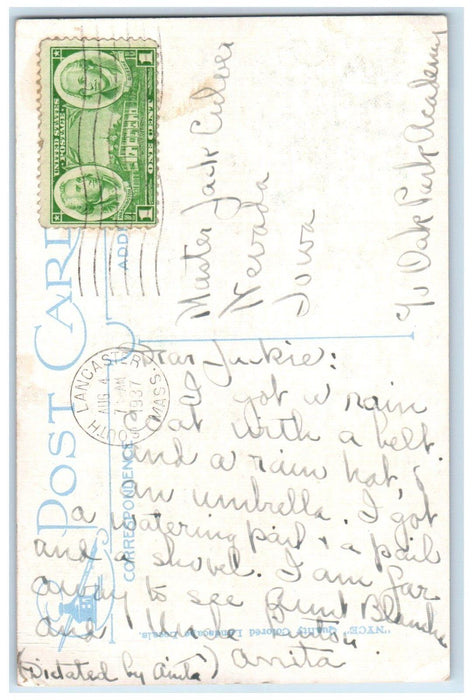 UNITED STATES
POSTAGE
ONE CENT
1
1
POST CARD
CORRESPONDENCE
ADD
SOUTH LANCASTER
MASS.
AUG 4
7 AM
1937
Master Jack Culver
Nevada
Iowa
c/o Oak Park Academy
Dear Jackie:
I got a rain
coat with a belt
and a rain hat,
an umbrella. I got
a watering pail + a pail
and a shovel. I am far
away to see Aunt Blanche
and Uncle
(Dictated by Anita) Anita
"NYCE" Quality Colored Landscape